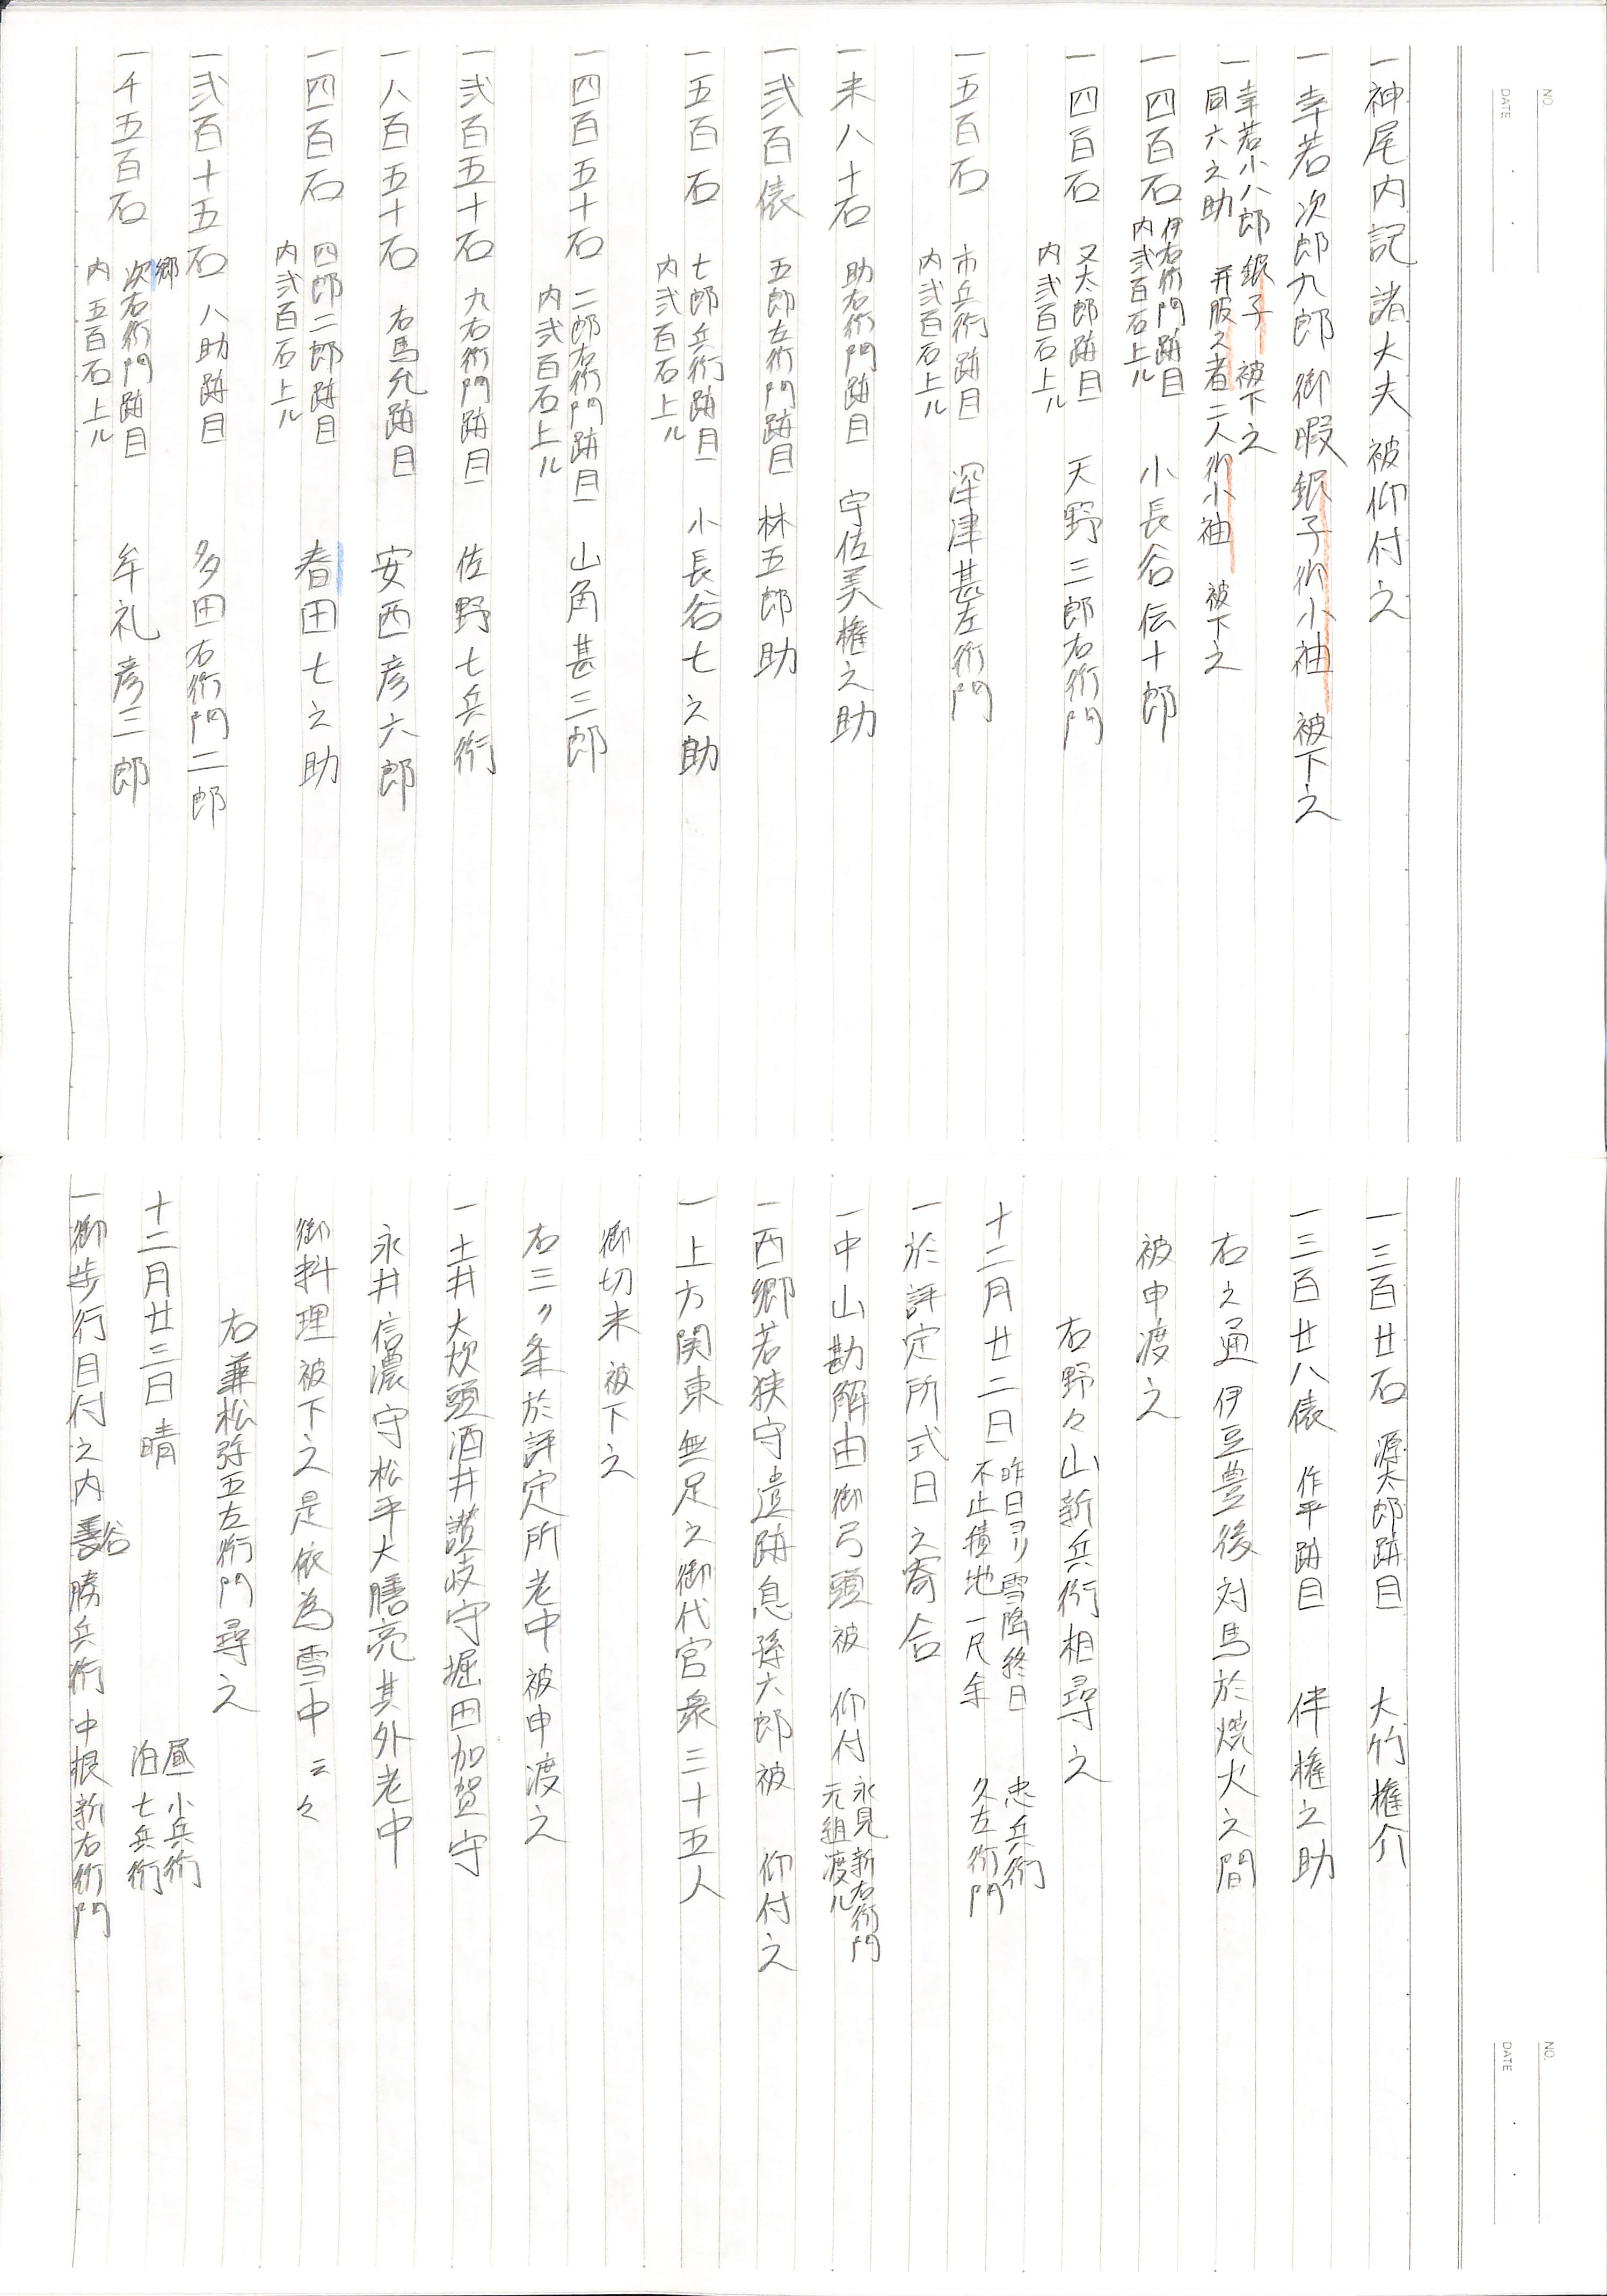 NO.
DATE
一神尾内記諸大夫被仰付之
一幸若次郎九郎御暇銀子御小袖 被下之
一幸若小八郎 銀子 被下之
同六之助 并服之者二人御小袖 被下之
一四百石 伊右衛門跡目 内弐百石上ル 小長谷伝十郎
一四百石 又太郎跡目 内弐百石上ル 天野三郎右衛門
一五百石 市兵衛跡目 内弐百石上ル 深津甚左衛門
一米八十石 助右衛門跡目 宇佐美権之助
一弐百俵 五郎左衛門跡目 林五郎助
一五百石 七郎兵衛跡目 内弐百石上ル 小長谷七之助
一四百五十石 二郎右衛門跡目 内弐百石上ル 山角甚三郎
一弐百五十石 九右衛門跡目 佐野七兵衛
一八百五十石 右馬允跡目 安西彦六郎
一四百石 四郎二郎跡目 内弐百石上ル 春田七之助
一弐百十五石 八助跡目 多田右衛門二郎
一千五百石 次右衛門跡目 内五百石上ル 牟礼彦三郎
郷
NO.
DATE
一三百廿石 源太郎跡目 大竹権介
一三百廿八俵 作平跡目 伴権之助
右之通伊豆豊後対馬於焼火之間
被申渡之
右野々山新兵衛相尋之
十二月廿二日 昨日ヨリ雪降終日 不止積地一尺余 忠兵衛 久左衛門
一於評定所式日之寄合
一中山勘解由御弓頭被 仰付 永見新右衛門 元組渡ル
一西郷若狭守遺跡息孫太郎被 仰付之
一上方関東無足之御代官衆三十五人
御切米被下之
右三ヶ条於評定所老中被申渡之
一土井大炊頭酒井讃岐守堀田加賀守
永井信濃守松平大膳亮其外老中
御料理被下之是依為雪中云々
右兼松弥五左衛門尋之
十二月廿三日晴 昼 小兵衛 泊 七兵衛
一御歩行目付之内 谷勝兵衛中根新右衛門